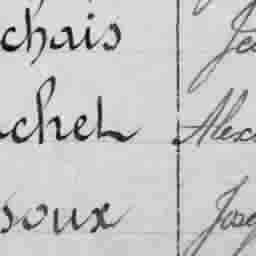 chais Je
chet Alex
soux Jos